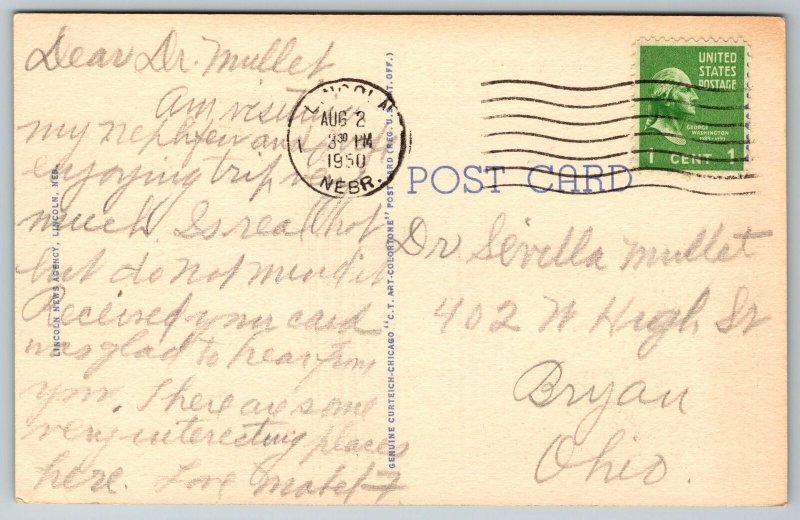 Dear Dr. Mullet
Am visiting
my nephew and
enjoying trip very
much. Is real hot
but do not mind it
Received your card
was glad to hear from
you. There are some
very interesting places
here. Love
LINCOLN NEWS AGENCY, LINCOLN, NEB.
GENUINE CURTEICH-CHICAGO "C. T. ART-COLORTONE" POST CARD (REG. U. S. PAT. OFF.)
LINCOLN
AUG 2
3 30 PM
1950
NEBR.
UNITED
STATES
POSTAGE
GEORGE
WASHINGTON
1 CENT 1
POST CARD
Dr Sevilla Mullet
402 W High St
Bryan
Ohio.